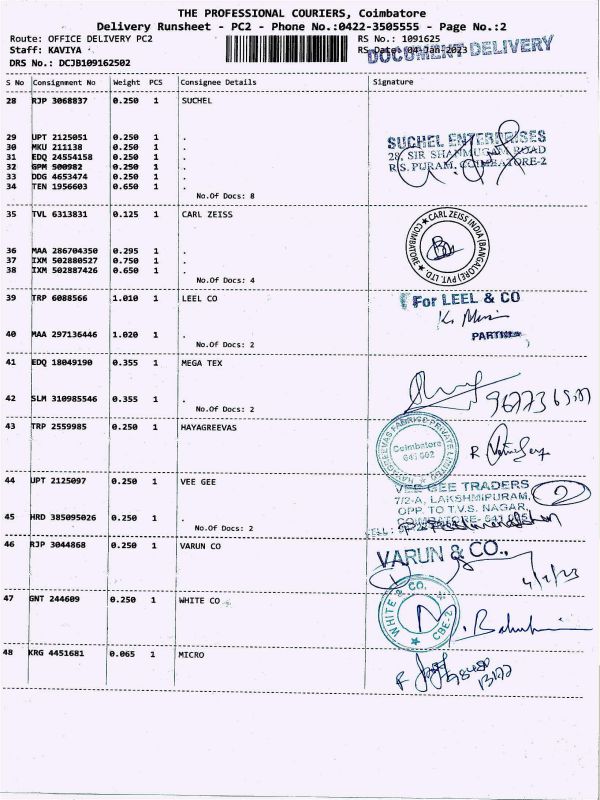 THE PROFESSIONAL COURIERS, Coimbatore
Delivery Runsheet - PC2 - Phone No.:0422-3505555 - Page No.:2
Route: OFFICE DELIVERY PC2 RS No.: 1091625
Staff: KAVIYA RS Date: 04-Jan-2023
DOCUMENT DELIVERY
DRS No.: DCJB109162502
S No Consignment No Weight PCS Consignee Details Signature
28 RJP 3068837 0.250 1 SUCHEL
29 UPT 2125051 0.250 1 .
30 MKU 211138 0.250 1 .
31 EDQ 24554158 0.250 1 .
32 GPM 500982 0.250 1 .
33 DDG 4653474 0.250 1 .
34 TEN 1956603 0.650 1 .
No.Of Docs: 8
SUCHEL ENTERPRISES
28, SIR SHANMUGAM ROAD
R.S. PURAM, COIMBATORE-2
35 TVL 6313831 0.125 1 CARL ZEISS
36 MAA 286704350 0.295 1 .
37 IXM 502880527 0.750 1 .
38 IXM 502887426 0.650 1 .
No.Of Docs: 4
CARL ZEISS INDIA (BANGALORE) PVT. LTD. COIMBATORE
39 TRP 6088566 1.010 1 LEEL CO
For LEEL & CO
40 MAA 297136446 1.020 1 .
No.Of Docs: 2
PARTNER
41 EDQ 18049190 0.355 1 MEGA TEX
42 SLM 310985546 0.355 1 .
No.Of Docs: 2
43 TRP 2559985 0.250 1 HAYAGREEVAS
HAYAGREEVAS FABRICS PRIVATE LIMITED
Coimbatore
641 002
44 UPT 2125097 0.250 1 VEE GEE
45 HRD 385095026 0.250 1 .
No.Of Docs: 2
VEE GEE TRADERS
7/2-A, LAKSHMIPURAM,
OPP. TO T.V.S. NAGAR,
2
46 RJP 3044868 0.250 1 VARUN CO
VARUN & CO.,
4/1/23
47 GNT 244609 0.250 1 WHITE CO
WHITE & CO. CBE-2
48 KRG 4451681 0.065 1 MICRO